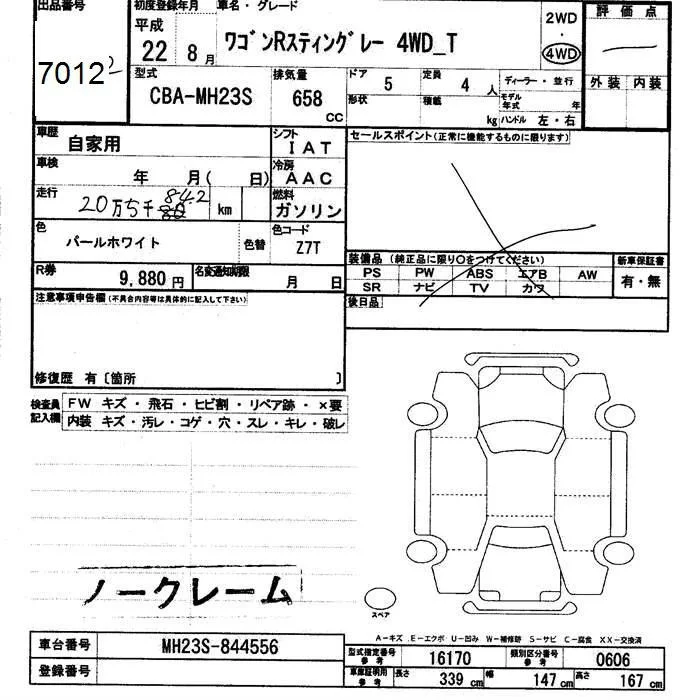 出品番号
7012
初度登録年月
平成
22 8 月
車名・グレード
ワゴンRスティングレー 4WD_T
2WD
・
4WD
評価点
外装 内装
型式
CBA-MH23S
排気量
658
CC
ドア 5
定員 4 人
ディーラー・並行
形状
積載 kg
モデル年式 年
ハンドル 左・右
車歴 自家用
シフト IAT
車検 年 月( 日)
冷房 AAC
走行 20万5千842 km
燃料 ガソリン
色 パールホワイト
色替
色コード Z7T
R券 9,880 円
名変通知期限 月 日
セールスポイント(正常に機能するものに限ります)
装備品 (純正品に限り○をつけてください)
新車保証書
PS PW ABS エアB AW
有・無
SR ナビ TV カワ
後日品
注意事項申告欄(不具合内容等は具体的に記入して下さい)
修復歴 有〔箇所 〕
検査員記入欄
FW キズ・飛石・ヒビ割・リペア跡・×要
内装 キズ・汚レ・コゲ・穴・スレ・キレ・破レ
ノークレーム
スペア
A-キズ E-エクボ U-凹み W-補修跡 S-サビ C-腐食 XX-交換済
車台番号 MH23S-844556
登録番号
型式指定番号 参考 16170
類別区分番号 参考 0606
車庫証明用 参考 長さ 339 cm 幅 147 cm 高さ 167 cm